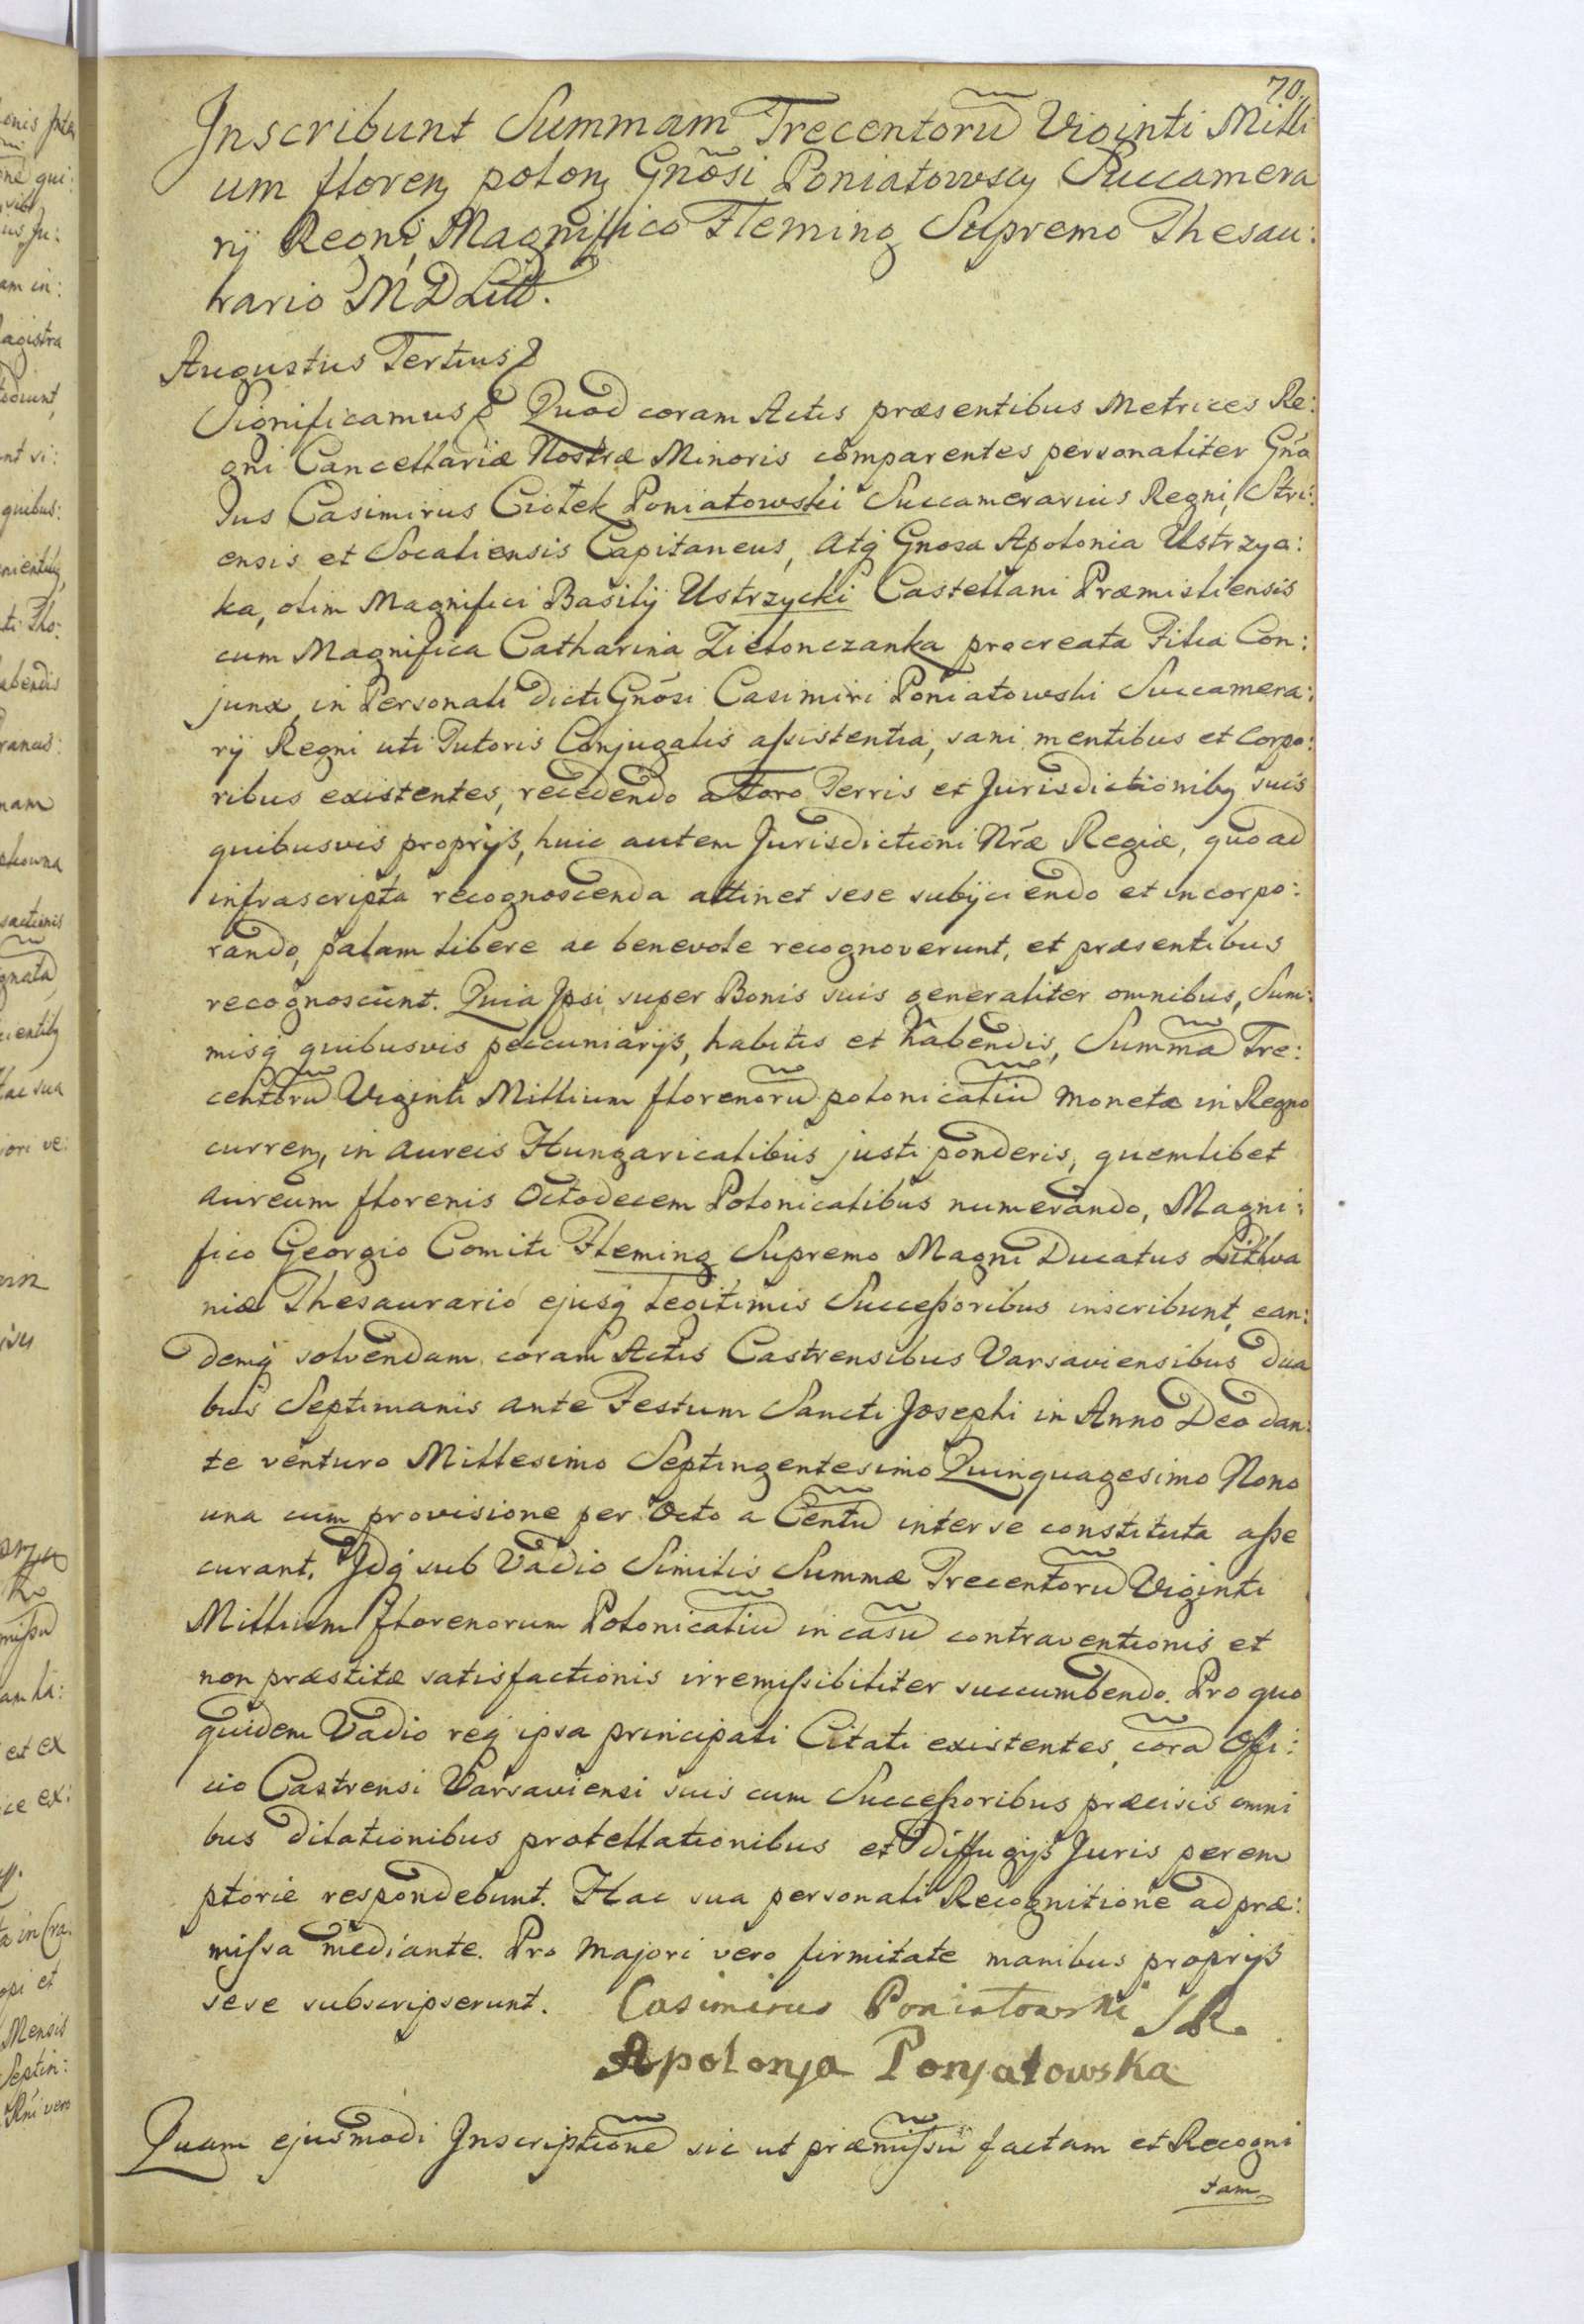 70.
Inscribunt Summam Trecentorũ Viginti Milli
um floren polon Gnõsi Poniatowscy Succamera
rij Regni, Magniffico Fleming Supremo Thesau:
rario M D Litt.
Augustus Tertius
Significamus Quod coram Actis præsentibus Metrices Re:
gni Cancellariæ Nostræ Minoris comparentes personaliter Gño
sus Casimirus Ciołek Poniatowski Succamerarius Regni, Stri:
ensis et Socaliensis Capitaneus, atq Gnosa Apolonia Ustrzyc:
ka, olim Magnifici Basilij Ustrzycki Castellani Præmisliensis
cum Magnifica Catharina Zielonczanka procreata Filia Con:
junx, in Personali dicti Gnõsi Casimiri Poniatowski Succamera:
rij Regni uti Tutoris Conjugalis assistentia, sani mentibus et corpo:
ribus existentes, recedendo a Foro Terris et Jurisdictionibq suis
quibusvis proprijs, huic autem Jurisdictioni Nr̃æ Regiæ, quo ad
infrascripta recognoscenda attinet sese subijciendo et incorpo:
rando, palam libere ac benevole recognoverunt, et præsentibus
recognoscunt. Quia Ipsi super Bonis suis generaliter omnibus, Sum:
misq quibusvis peccuniarijs, habitis et habendis, Summã Tre:
centorũ Viginti Millium florenorũ polonicaliũ monetæ in Regno
curren, in aureis Hungaricalibus justi ponderis, quemlibet
aureum florenis Octodecem Polonicalibus numerando, Magni:
fico Georgio Comiti Fleming Supremo Magni Ducatus Lithva
niæ Thesaurario ejusq legitimis Successoribus inscribunt, ean:
demq solvendam coram Actis Castrensibus Varsaviensibus dua
bus Septimanis ante Festum Sancti Josephi in Anno Deo dan:
te venturo Millesimo Septingentesimo Quinquagesimo Nono
una cum provisione per Octo a Centũ inter se constituta asse
curant. Idq sub Vadio Similis Summæ Trecentorũ Viginti
Millium florenorum Polonicaliũ in casũ contraventionis et
non præstitæ satisfactionis irremissibiliter succumbendo. Pro quo
quidem Vadio req ipsa principali Citati existentes, corã Offi:
cio Castrensi Varsaviensi suis cum Successoribus præcisis omni
bus dilationibus protellationibus et diffugijs Juris perem
ptorie respondebunt. Hac sua personali Recognitione ad præ:
missa mediante. Pro majori vero firmitate manibus proprijs
sese subscripserunt. Casimirus Poniatowski SR.
Apolonja Ponyatowska
Quam ejusmodi Inscriptionẽ sic ut præmissũ factam et Recogni
tam